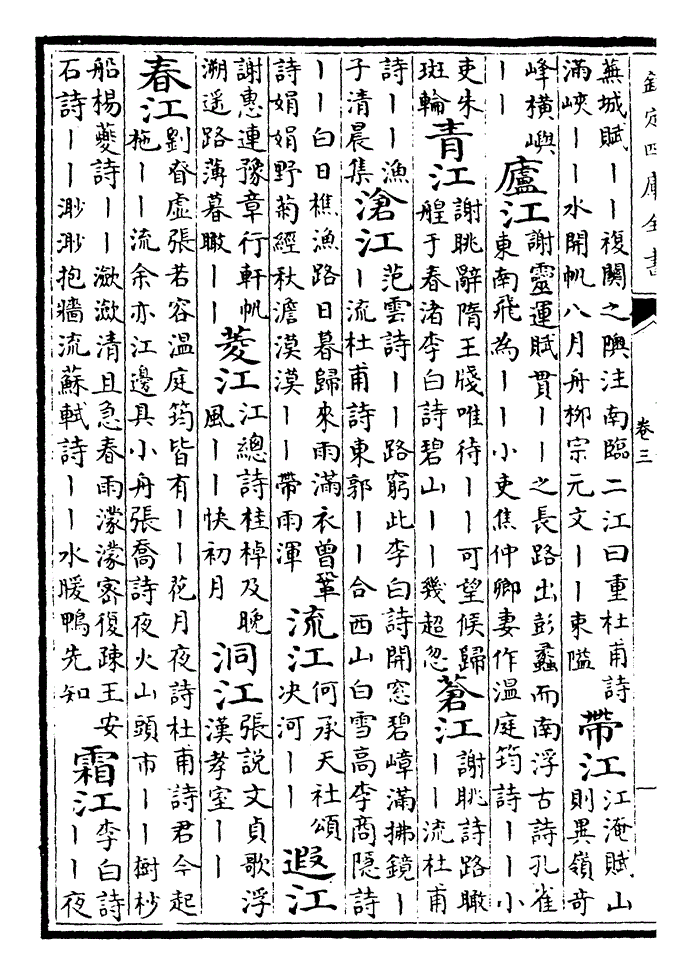 欽定四庫全書
卷三
一
蕪城賦丨丨複關之隩注南臨二江曰重杜甫詩
滿峽丨丨水開帆八月舟柳宗元文丨丨東隘
帶江
江淹賦山
則異嶺奇
峰橫嶼
丨丨
廬江
謝靈運賦貫丨丨之長路出彭蠡而南浮古詩孔雀
東南飛為丨丨小吏焦仲卿妻作溫庭筠詩丨丨小
吏朱
斑輪
青江
謝眺辭隋王牋唯待丨丨可望候歸
艎于春渚李白詩碧山丨丨幾超忽
蒼江
謝眺詩路瞰
丨丨流杜甫
詩丨丨漁
子清晨集
滄江
范雲詩丨丨路窮此李白詩開窓碧嶂滿拂鏡丨
丨流杜甫詩東郭丨丨合西山白雪高李商隱詩
丨丨白日樵漁路日暮歸來雨滿衣曾鞏
詩娟娟野菊經秋澹漠漠丨丨帶雨渾
流江
何承天社頌
决河丨丨
遐江
謝惠連豫章行軒帆
溯遥路薄暮瞰丨丨
菱江
江總詩桂棹及晚
風丨丨快初月
洞江
張説文貞歌浮
漢孝室丨丨
春江
劉眘虛張若容溫庭筠皆有丨丨花月夜詩杜甫詩君今起
柂丨丨流余亦江邊具小舟張喬詩夜火山頭市丨丨樹杪
船楊夔詩丨丨瀲瀲清且急春雨濛濛密復疎王安
石詩丨丨渺渺抱牆流蘇軾詩丨丨水暖鴨先知
霜江
李白詩
丨丨夜